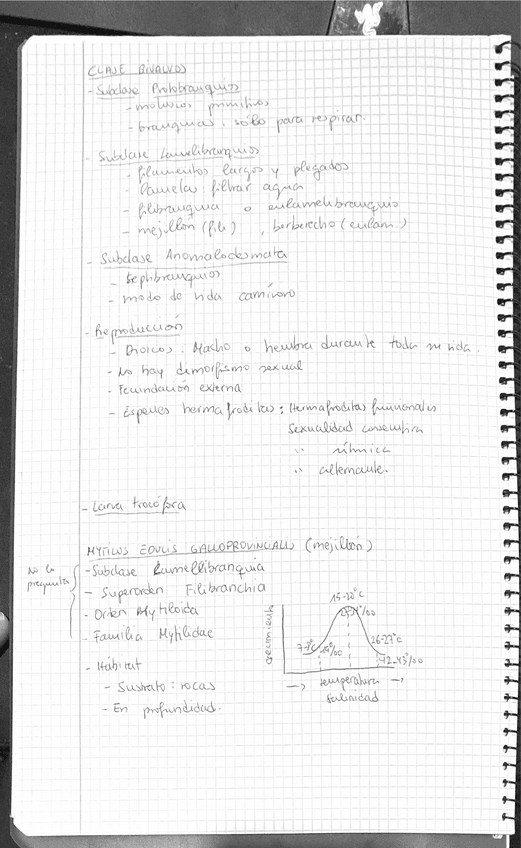 CLASE BIVALVOS
- Subclase Protobranquios
- moluscos primitivos
- branquias: sólo para respirar.
- Subclase Lamelibranquios
- filamentos largos y plegados
- lamelas filtrar agua
- filibranquia o eulamelibranquio
- mejillón (fili), berberecho (eulam.)
- Subclase Anomalodesmata
- Septibranquios
- modo de vida carnívoro
- Reproducción
- Dioicos: Macho o hembra durante toda su vida.
- No hay dimorfismo sexual
- Fecundación externa
- Especies hermafroditas: Hermafroditas funcionales
Sexualidad consecutiva
" rítmica
" alternante.
- Larva trocófora
MYTILUS EDULIS GALLOPROVINCIALIS (mejillón)
No lo pregunta
- Subclase Lamellibranquia
- Superorden Filibranchia
- Orden Mytiloida
- Familia Mytilidae
- Hábitat
- Sustrato: rocas
- En profundidad.
crecimiento
15-20°C
‰
7-8°C
‰
26-27°C
42-45‰
→ temperatura →
salinidad